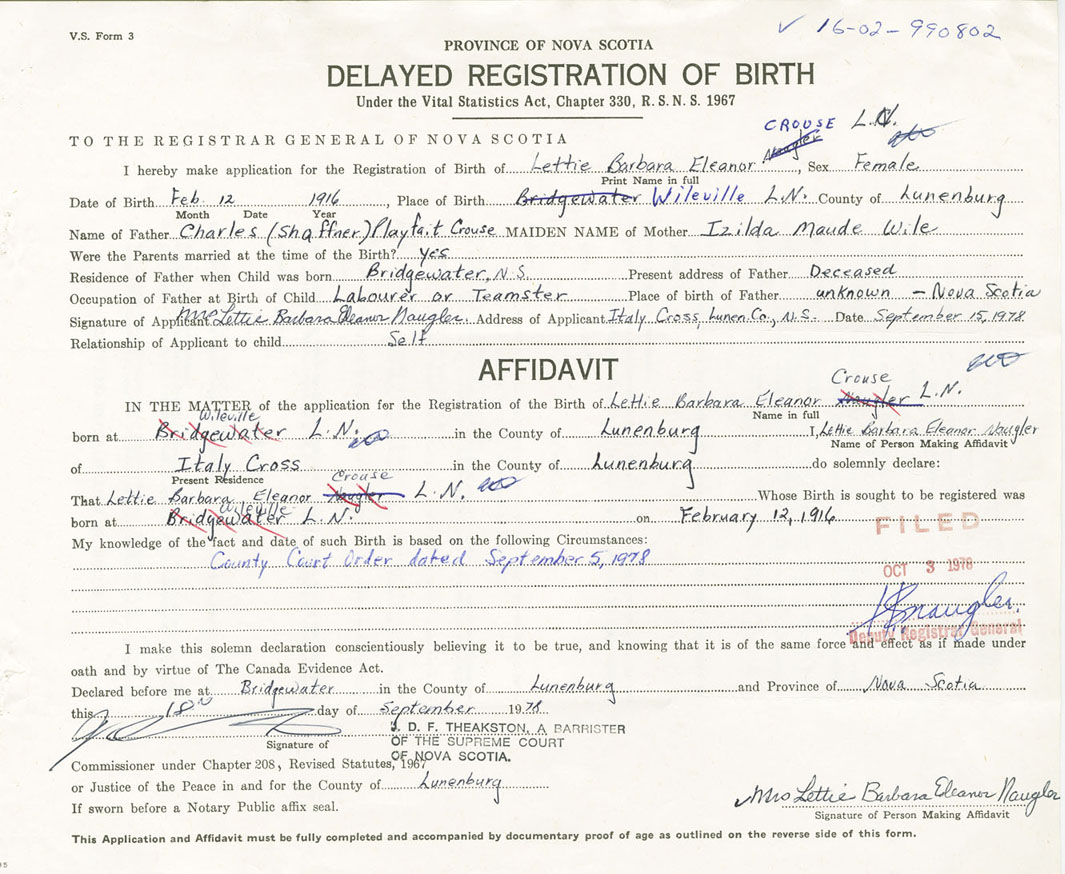 V.S. Form 3
✓ 16-02-990802
PROVINCE OF NOVA SCOTIA
DELAYED REGISTRATION OF BIRTH
Under the Vital Statistics Act, Chapter 330, R.S.N.S. 1967
TO THE REGISTRAR GENERAL OF NOVA SCOTIA
CROUSE L.N.
I hereby make application for the Registration of Birth of Lettie Barbara Eleanor Naugler, Sex Female
Print Name in full
Date of Birth Feb. 12 1916, Place of Birth Bridgewater Wileville L.N. County of Lunenburg
Month Date Year
Name of Father Charles (Shaffner) Playfait Crouse MAIDEN NAME of Mother Izilda Maude Wile
Were the Parents married at the time of the Birth? yes
Residence of Father when Child was born Bridgewater, N.S. Present address of Father Deceased
Occupation of Father at Birth of Child Labourer or Teamster Place of birth of Father unknown - Nova Scotia
Signature of Applicant Mrs Lettie Barbara Eleanor Naugler. Address of Applicant Italy Cross, Lunen. Co., N.S. Date September 15, 1978
Relationship of Applicant to child Self
AFFIDAVIT
Crouse
IN THE MATTER of the application for the Registration of the Birth of Lettie Barbara Eleanor Naugler L.N.
Name in full
Wileville
born at Bridgewater L.N. in the County of Lunenburg I, Lettie Barbara Eleanor Naugler
Name of Person Making Affidavit
of Italy Cross in the County of Lunenburg do solemnly declare:
Present Residence
Crouse
That Lettie Barbara Eleanor Naugler L.N. Whose Birth is sought to be registered was
Wileville
born at Bridgewater L.N. on February 12, 1916
FILED
My knowledge of the fact and date of such Birth is based on the following Circumstances:
County Court Order dated September 5, 1978
OCT 3 1978
Deputy Registrar General
I make this solemn declaration conscientiously believing it to be true, and knowing that it is of the same force and effect as if made under
oath and by virtue of The Canada Evidence Act.
Declared before me at Bridgewater in the County of Lunenburg and Province of Nova Scotia
this 18 day of September 1978
J. D. F. THEAKSTON, A BARRISTER
OF THE SUPREME COURT
OF NOVA SCOTIA.
Signature of
Commissioner under Chapter 208, Revised Statutes, 1967
or Justice of the Peace in and for the County of Lunenburg
If sworn before a Notary Public affix seal.
Mrs Lettie Barbara Eleanor Naugler
Signature of Person Making Affidavit
This Application and Affidavit must be fully completed and accompanied by documentary proof of age as outlined on the reverse side of this form.